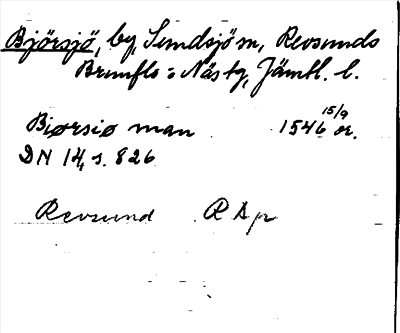 Björsjö, by, Sundsjö sn, Revsunds
Brunflo o Näs tg, Jämtl. l.
15/9
Biørsiø man 1546 or.
DN 14, s. 826
Revsund